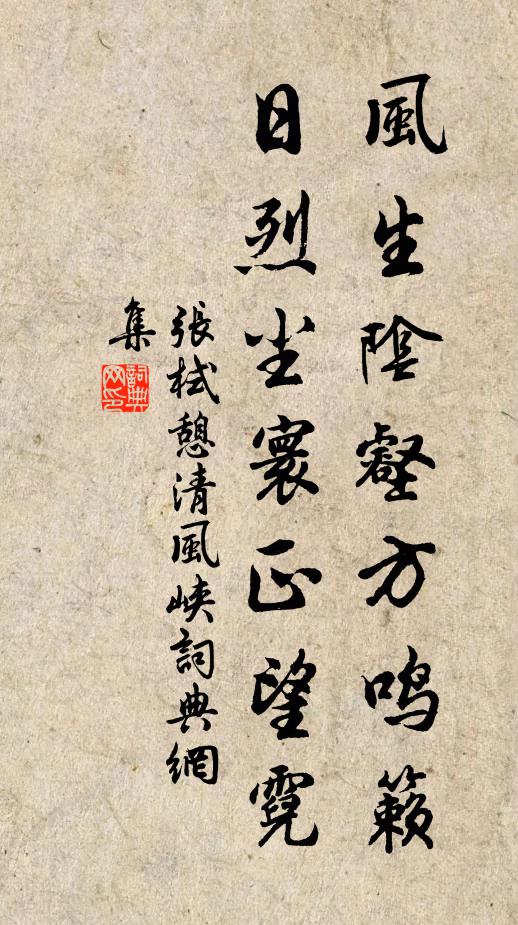 風生陰壑方鳴籟
日烈尘寰正望霓
張栻憩清風峡詞典網
集
詞典
网印